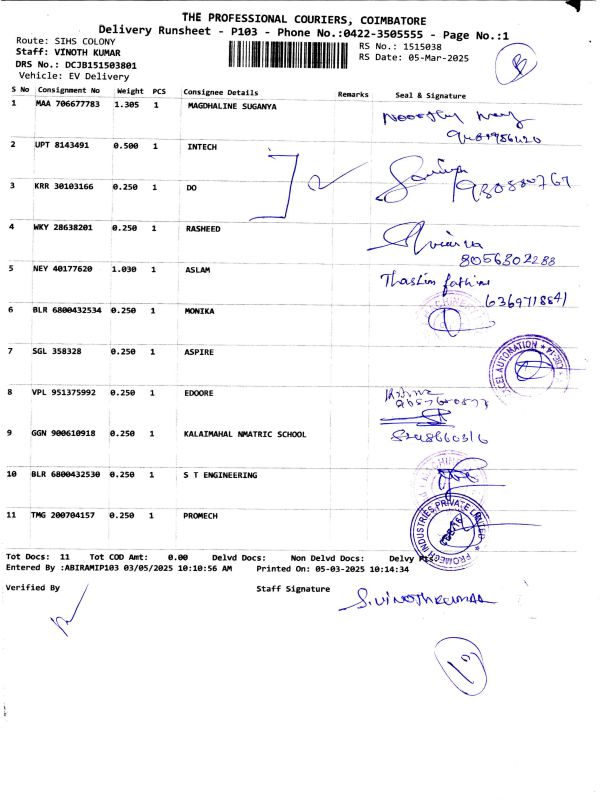 THE PROFESSIONAL COURIERS, COIMBATORE
Delivery Runsheet - P103 - Phone No.:0422-3505555 - Page No.:1
Route: SIHS COLONY
RS No.: 1515038
Staff: VINOTH KUMAR
RS Date: 05-Mar-2025
DRS No.: DCJB151503801
Vehicle: EV Delivery
S No Consignment No Weight PCS Consignee Details Remarks Seal & Signature
1 MAA 706677783 1.305 1 MAGDHALINE SUGANYA
2 UPT 8143491 0.500 1 INTECH
3 KRR 30103166 0.250 1 DO
4 WKY 28638201 0.250 1 RASHEED
8056802288
5 NEY 40177620 1.030 1 ASLAM
Thaslim fathima
6369718841
6 BLR 6800432534 0.250 1 MONIKA
7 SGL 358328 0.250 1 ASPIRE
8 VPL 951375992 0.250 1 EDOORE
9 GGN 900610918 0.250 1 KALAIMAHAL NMATRIC SCHOOL
10 BLR 6800432530 0.250 1 S T ENGINEERING
11 TMG 200704157 0.250 1 PROMECH
PROMECH INDUSTRIES PRIVATE LIMITED
Tot Docs: 11 Tot COD Amt: 0.00 Delvd Docs: Non Delvd Docs: Delvy
Entered By :ABIRAMIP103 03/05/2025 10:10:56 AM Printed On: 05-03-2025 10:14:34
Verified By Staff Signature
S.VINOTHKUMAR